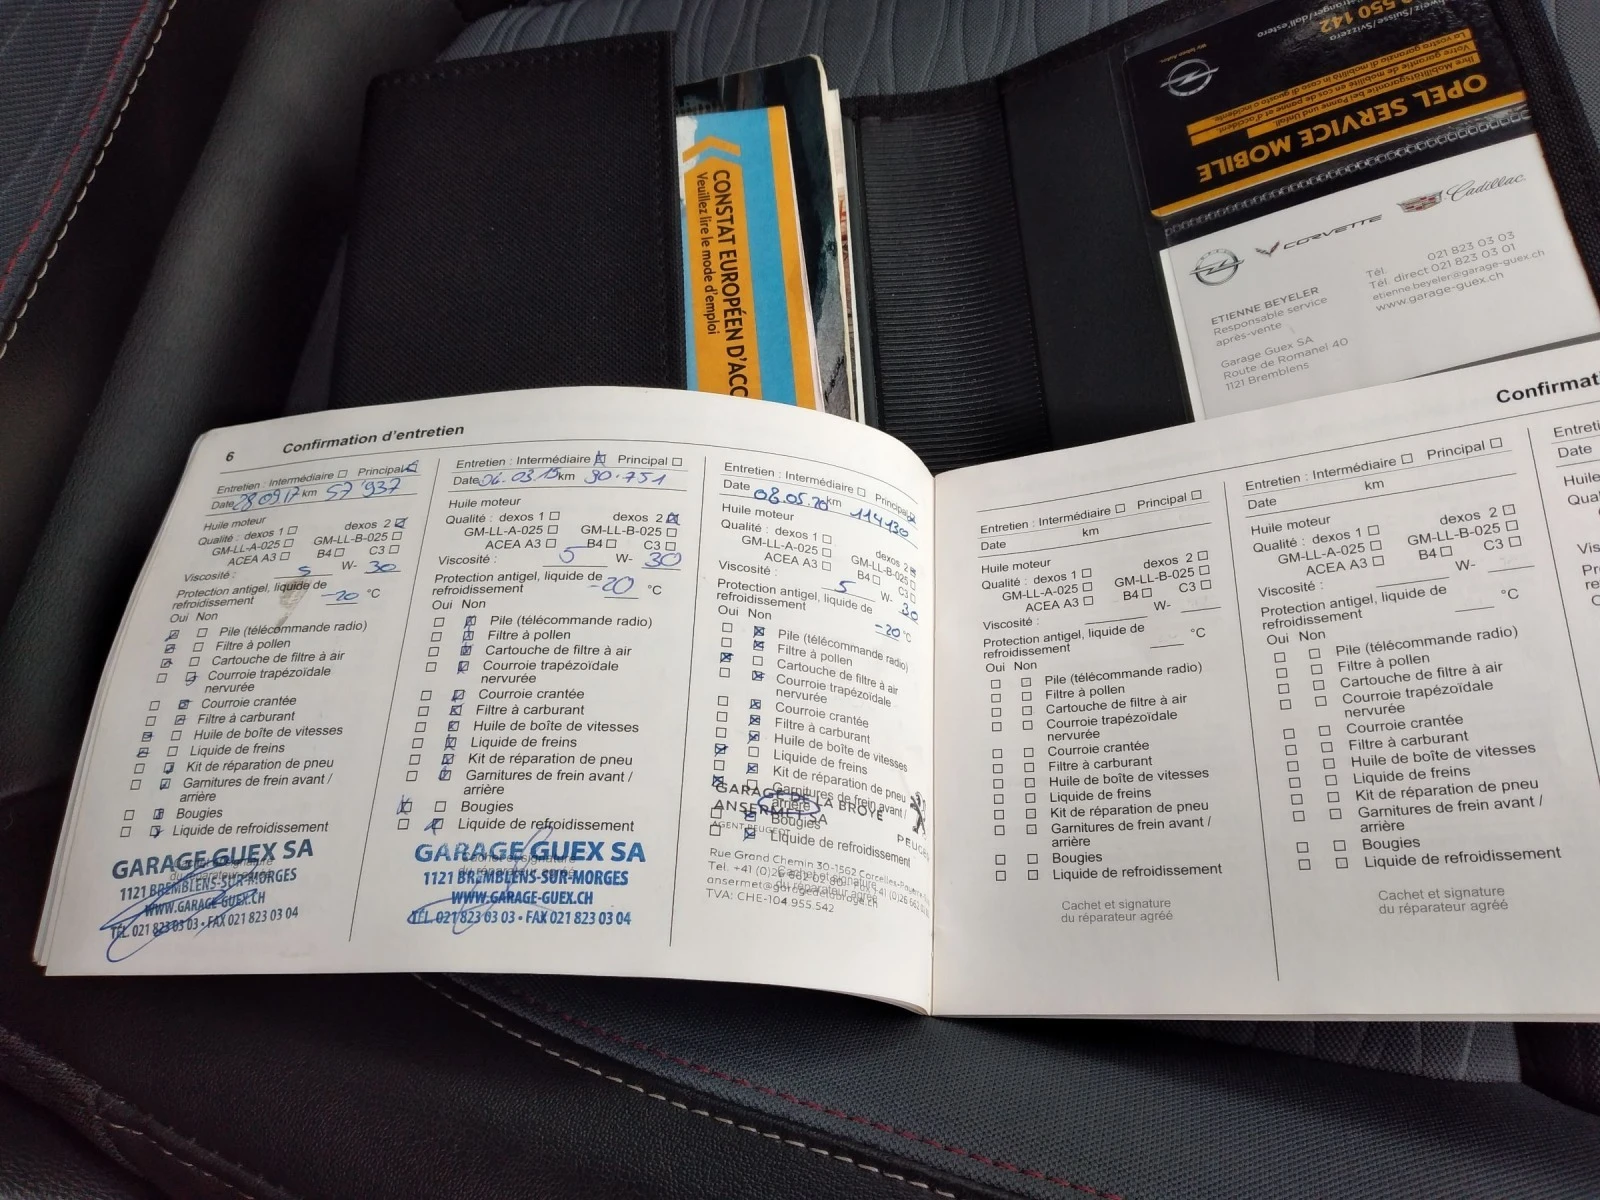 550 142
OPEL SERVICE MOBILE
Ihre Mobilitätsgarantie bei Panne und Unfall
Votre garantie de mobilité en cas de panne et d'accident.
La vostra garanzia di mobilità in caso di guasto o incidente.
CONSTAT EUROPÉEN D'ACC
Veuillez lire le mode d'emploi
CORVETTE
Cadillac
Tél. 021 823 03 03
Tél. direct 021 823 03 01
etienne.beyeler@garage-guex.ch
www.garage-guex.ch
ETIENNE BEYELER
Responsable service
après-vente
Garage Guex SA
Route de Romanel 40
1121 Bremblens
6 Confirmation d'entretien
Entretien : Intermédiaire Principal
Date 28 09 17 km 57'937
Huile moteur
Qualité : dexos 1 dexos 2
GM-LL-A-025 GM-LL-B-025
ACEA A3 B4 C3
Viscosité : 5 W- 30
Protection antigel, liquide de
refroidissement -20 °C
Oui Non
Pile (télécommande radio)
Filtre à pollen
Cartouche de filtre à air
Courroie trapézoïdale
nervurée
Courroie crantée
Filtre à carburant
Huile de boîte de vitesses
Liquide de freins
Kit de réparation de pneu
Garnitures de frein avant /
arrière
Bougies
Liquide de refroidissement
Cachet et signature
du réparateur agréé
GARAGE GUEX SA
1121 BREMBLENS-SUR-MORGES
WWW.GARAGE-GUEX.CH
TÉL. 021 823 03 03 • FAX 021 823 03 04
Entretien : Intermédiaire Principal
Date 06.03.19 km 90.751
Huile moteur
Qualité : dexos 1 dexos 2
GM-LL-A-025 GM-LL-B-025
ACEA A3 B4 C3
Viscosité : 5 W- 30
Protection antigel, liquide de
refroidissement -20 °C
Oui Non
Pile (télécommande radio)
Filtre à pollen
Cartouche de filtre à air
Courroie trapézoïdale
nervurée
Courroie crantée
Filtre à carburant
Huile de boîte de vitesses
Liquide de freins
Kit de réparation de pneu
Garnitures de frein avant /
arrière
Bougies
Liquide de refroidissement
Cachet et signature
du réparateur agréé
GARAGE GUEX SA
1121 BREMBLENS-SUR-MORGES
WWW.GARAGE-GUEX.CH
TÉL. 021 823 03 03 • FAX 021 823 03 04
Entretien : Intermédiaire Principal
Date 08.05.20 km 114130
Huile moteur
Qualité : dexos 1 dexos 2
GM-LL-A-025 GM-LL-B-025
ACEA A3 B4 C3
Viscosité : 5 W- 30
Protection antigel, liquide de
refroidissement -20 °C
Oui Non
Pile (télécommande radio)
Filtre à pollen
Cartouche de filtre à air
Courroie trapézoïdale
nervurée
Courroie crantée
Filtre à carburant
Huile de boîte de vitesses
Liquide de freins
Kit de réparation de pneu
Garnitures de frein avant /
arrière
Bougies
Liquide de refroidissement
Cachet et signature
du réparateur agréé
GARAGE DE LA BROYE
ANSERMET SA
AGENT PEUGEOT
Rue Grand Chemin 30-1562 Corcelles-Payerne
TVA: CHE-104.955.542
Entretien : Intermédiaire Principal
Date km
Huile moteur
Qualité : dexos 1 dexos 2
GM-LL-A-025 GM-LL-B-025
ACEA A3 B4 C3
Viscosité : W-
Protection antigel, liquide de
refroidissement °C
Oui Non
Pile (télécommande radio)
Filtre à pollen
Cartouche de filtre à air
Courroie trapézoïdale
nervurée
Courroie crantée
Filtre à carburant
Huile de boîte de vitesses
Liquide de freins
Kit de réparation de pneu
Garnitures de frein avant /
arrière
Bougies
Liquide de refroidissement
Cachet et signature
du réparateur agréé
Confirmati
Entretien : Intermédiaire Principal
Date km
Huile moteur
Qualité : dexos 1 dexos 2
GM-LL-A-025 GM-LL-B-025
ACEA A3 B4 C3
Viscosité : W-
Protection antigel, liquide de
refroidissement °C
Oui Non
Pile (télécommande radio)
Filtre à pollen
Cartouche de filtre à air
Courroie trapézoïdale
nervurée
Courroie crantée
Filtre à carburant
Huile de boîte de vitesses
Liquide de freins
Kit de réparation de pneu
Garnitures de frein avant /
arrière
Bougies
Liquide de refroidissement
Cachet et signature
du réparateur agréé
Entreti
Date
Huile
Qual